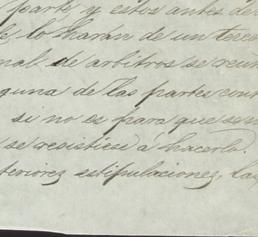 parte y estos antes de
lo haran de un terce
nal de arbitros se reun
guna de las partes cont
si no es para que
se resistiese á hacerlo.
teriores estipulaciones, las